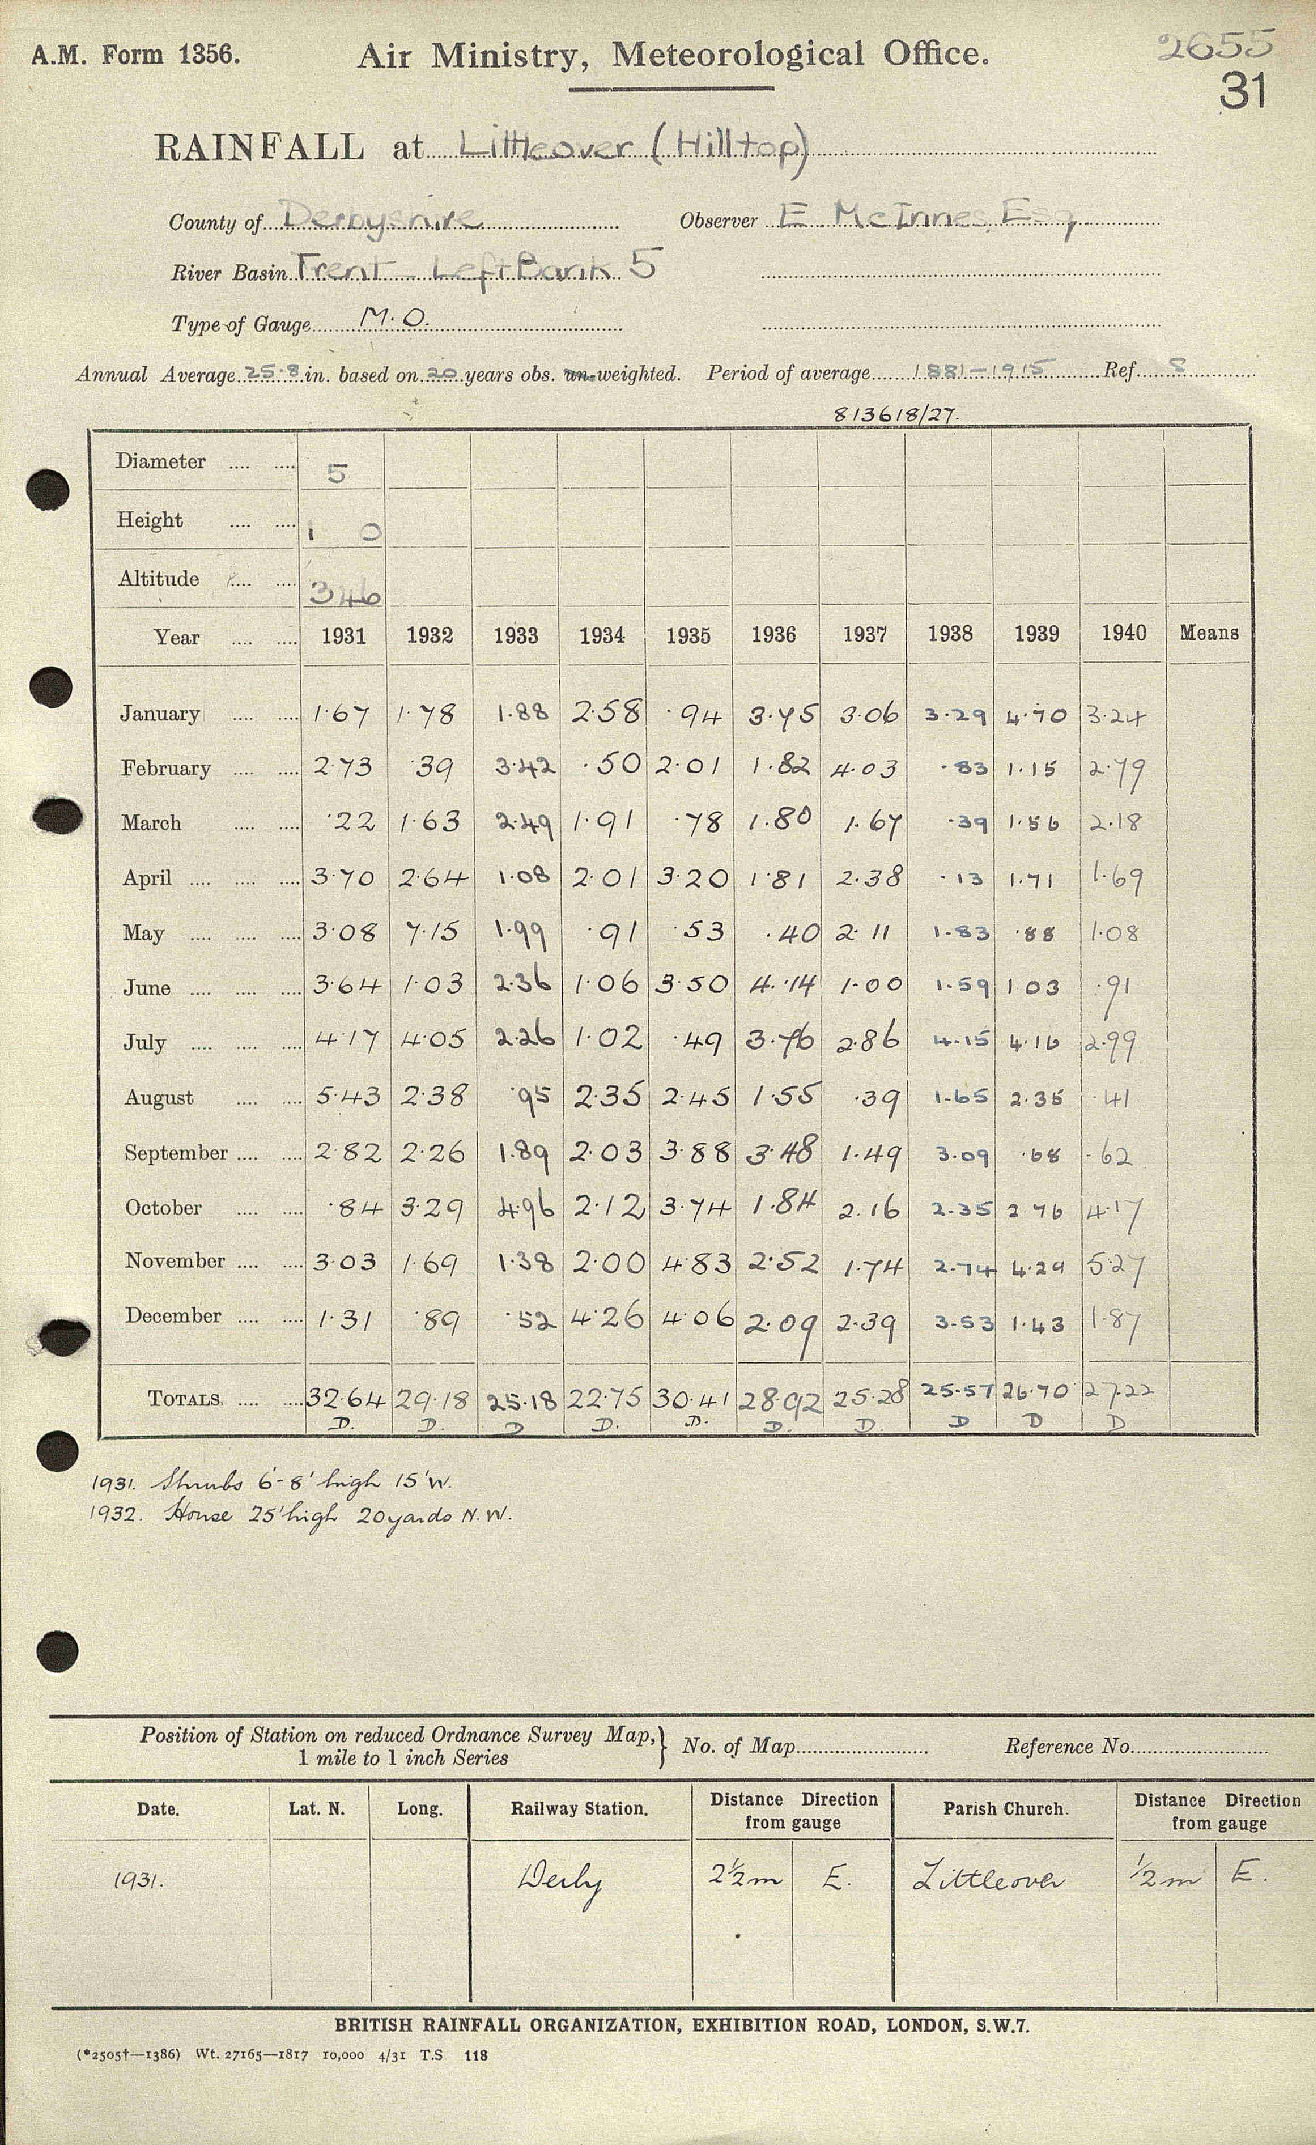 A.M. Form 1356.
Air Ministry, Meteorological Office.
2655
31
RAINFALL at Littleover (Hilltop)
County of Derbyshire Observer E McInnes, Esq
River Basin Trent - Left Bank 5
Type of Gauge M.O.
Annual Average 25.8 in. based on 20 years obs. un-weighted. Period of average 1881-1915 Ref. 8
813618/27.
Diameter .... .... 5
Height .... .... 1 0
Altitude .... .... 346
Year .... .... 1931 1932 1933 1934 1935 1936 1937 1938 1939 1940 Means
January .... .... 1.67 1.78 1.88 2.58 .94 3.75 3.06 3.29 4.70 3.24
February .... .... 2.73 .39 3.42 .50 2.01 1.82 4.03 .83 1.15 2.79
March .... .... .22 1.63 2.49 1.91 .78 1.80 1.67 .39 1.56 2.18
April .... .... .... 3.70 2.64 1.08 2.01 3.20 1.81 2.38 .13 1.71 1.69
May .... .... .... 3.08 7.15 1.99 .91 .53 .40 2.11 1.83 .88 1.08
June .... .... .... 3.64 1.03 2.36 1.06 3.50 4.14 1.00 1.59 1.03 .91
July .... .... .... 4.17 4.05 2.26 1.02 .49 3.76 2.86 4.15 4.16 2.99
August .... .... 5.43 2.38 .95 2.35 2.45 1.55 .39 1.65 2.35 .41
September .... .... 2.82 2.26 1.89 2.03 3.88 3.48 1.49 3.09 .68 .62
October .... .... .84 3.29 4.96 2.12 3.74 1.84 2.16 2.35 2.76 4.17
November .... .... 3.03 1.69 1.38 2.00 4.83 2.52 1.74 2.74 4.29 5.27
December .... .... 1.31 .89 .52 4.26 4.06 2.09 2.39 3.53 1.43 1.87
TOTALS .... .... 32.64 29.18 25.18 22.75 30.41 28.92 25.28 25.57 26.70 27.22
D. D. D D. D. D. D. D D D
1931. Shrubs 6'-8' high 15' W.
1932. House 25' high 20 yards N.W.
Position of Station on reduced Ordnance Survey Map,
1 mile to 1 inch Series
No. of Map Reference No.
Date. Lat. N. Long. Railway Station. Distance Direction from gauge Parish Church. Distance Direction from gauge
1931. Derby 2½ m E. Littleover ½ m E.
BRITISH RAINFALL ORGANIZATION, EXHIBITION ROAD, LONDON, S.W.7.
(*2505†—1386) Wt. 27165—1817 10,000 4/31 T.S. 118